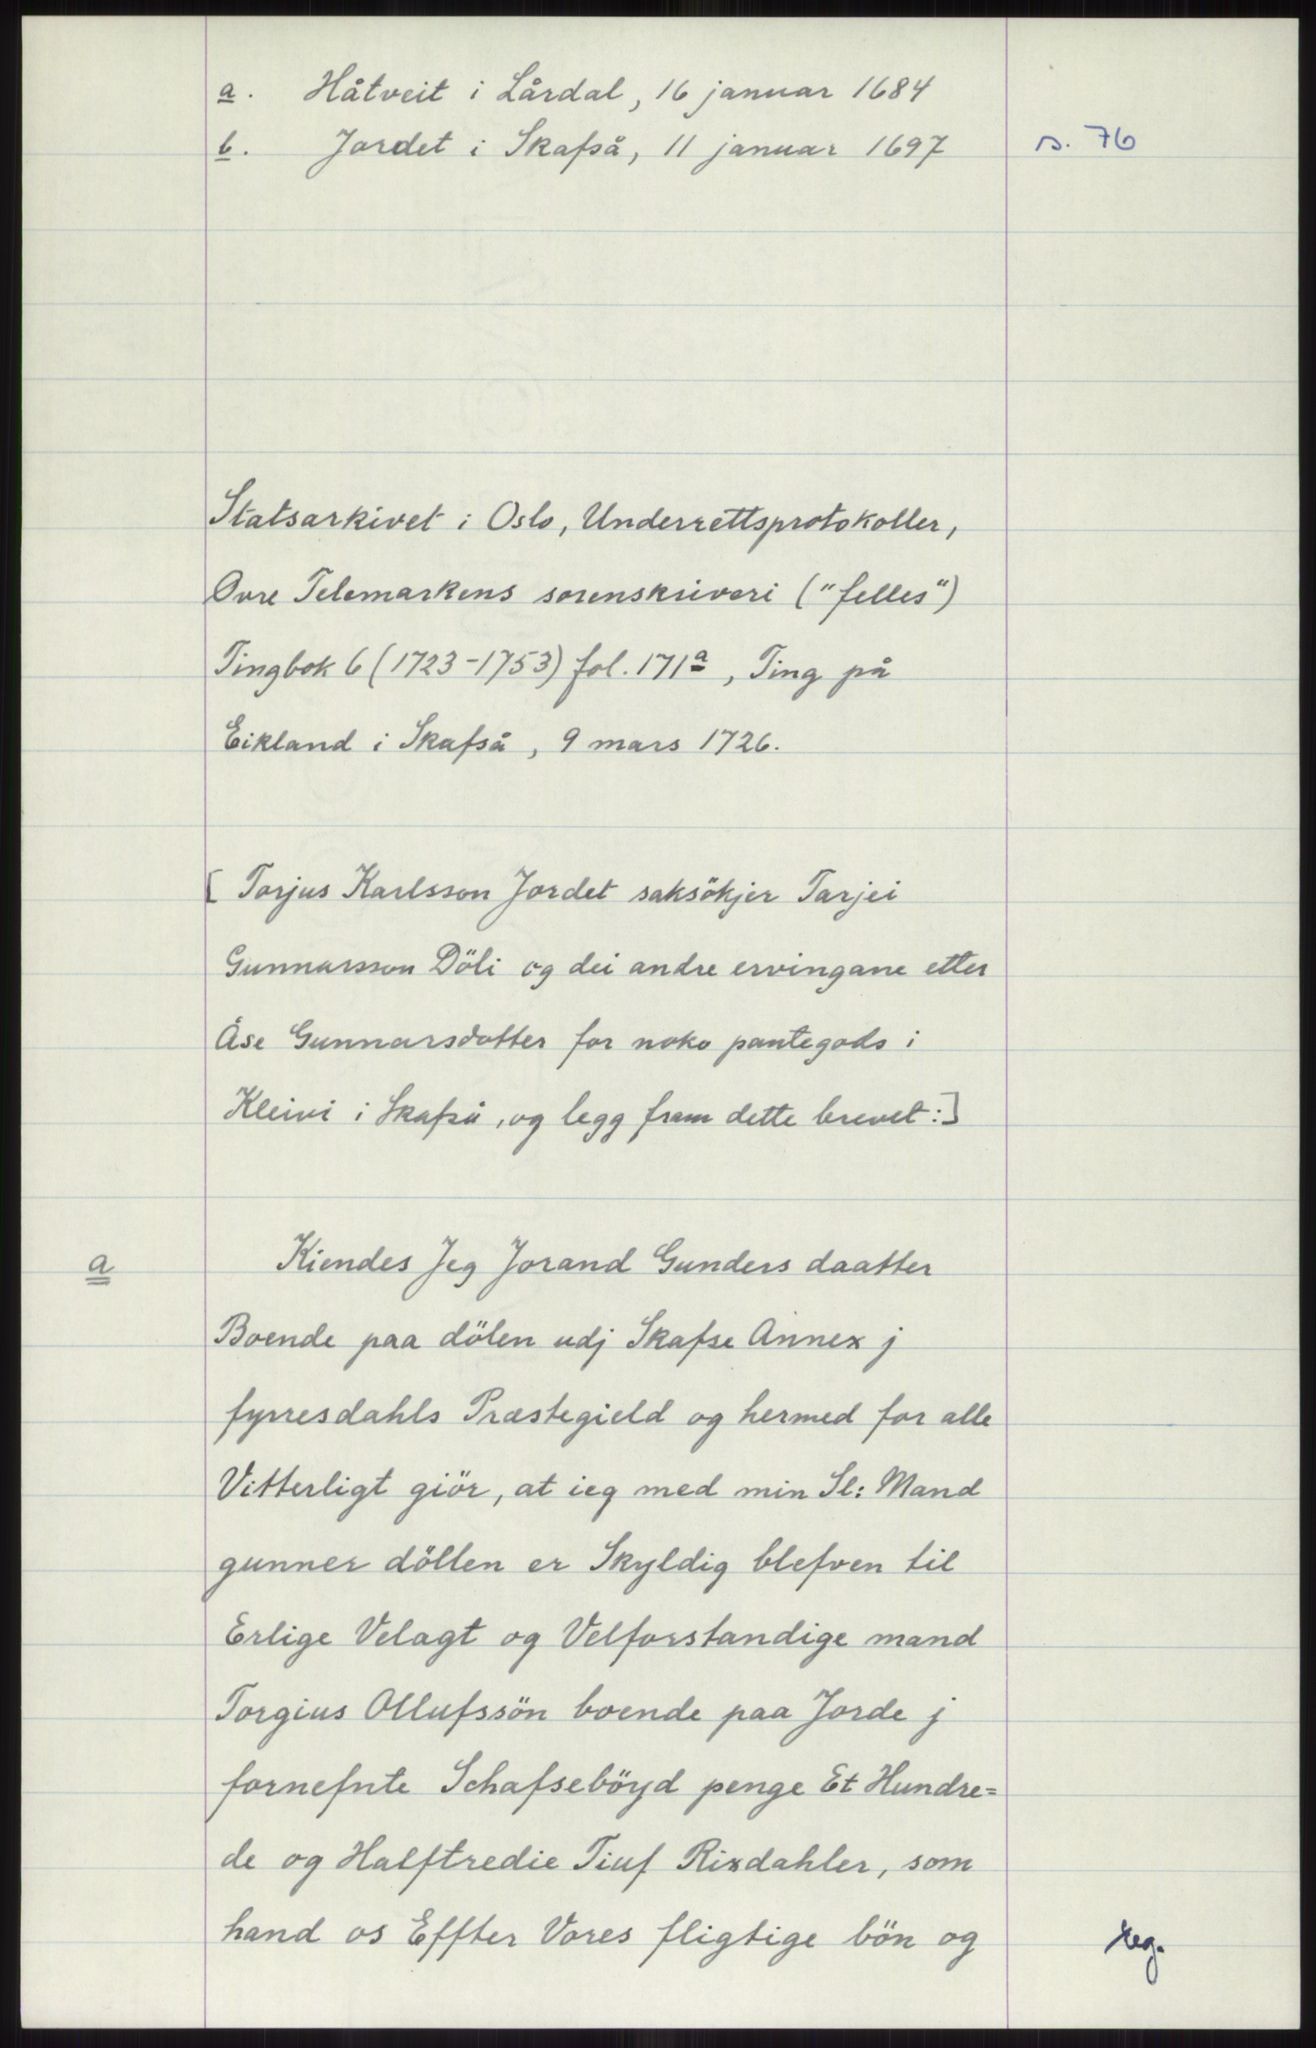 a. Håtveit i Lårdal, 16 januar 1684
b. Jordet i Skafså, 11 januar 1697
s. 76
Statsarkivet i Oslo, Underrettsprotokoller,
Øvre Telemarkens sorenskriveri ("felles")
Tingbok 6 (1723-1753) fol. 171a, Ting på
Eikland i Skafså, 9 mars 1726.
[Torjus Karlsson Jordet saksökjer Tarjei
Gunnarsson Döli og dei andre ervingane etter
Åse Gunnarsdotter for noko pantegods i
Kleivi i Skafså, og legg fram dette brevet:]
a
Kiendes Jeg Jorand Gunders daatter
Boende paa dölen udj Skafse Annex j
fyrresdahls Præstegield og hermed for alle
Vitterligt giör, at ieg med min Sl: Mand
gunner döllen er Skyldig blefven til
Erlige Velagt og Velforstandige mand
Torgius Ollufssön boende paa Jorde j
fornefnte Schafseböyd penge Et Hundre=
de og Halftredie Tiuf Rixdahler, som
hand os Effter Vores fligtige bön og
reg.